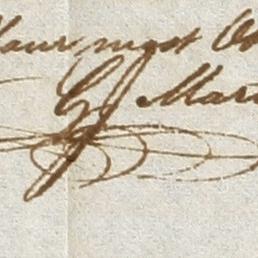 Your most Ob
G Mar